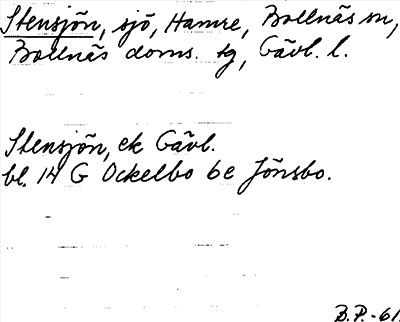 Stensjön, sjö, Hamre, Bollnäs sn,
Bollnäs doms. tg, Gävl. l.
Stensjön, ek Gävl.
bl. 14 G Ockelbo be Jönsbo.
B.P.-61.